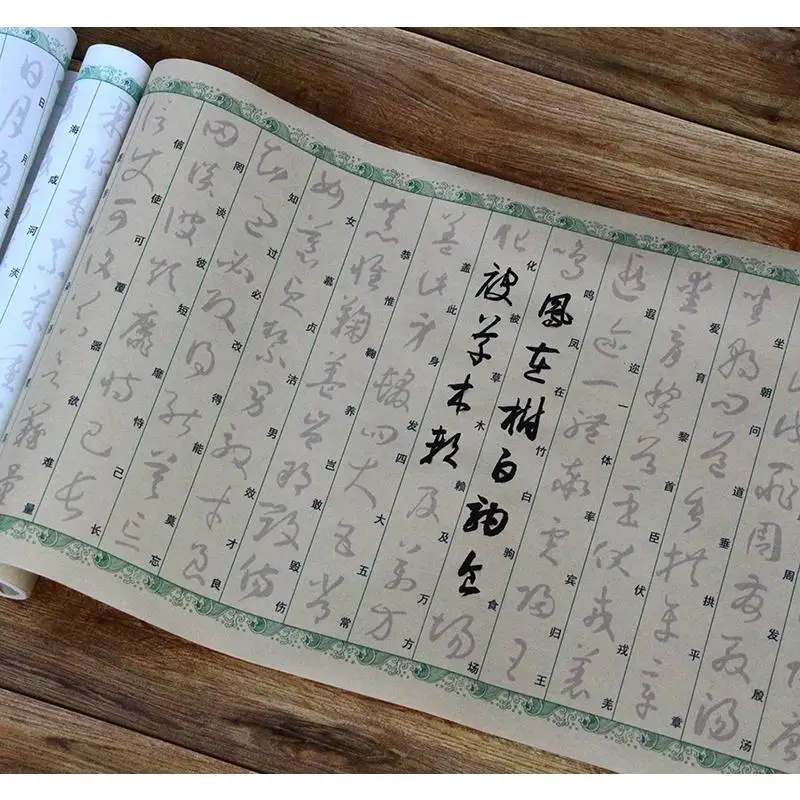 周发殷汤
坐朝问道垂拱平章
爱育黎首臣伏戎羌
遐迩一体率宾归王
鸣凤在竹白驹食场
化被草木赖及万方
盖此身发四大五常
恭惟鞠养岂敢毁伤
女慕贞洁男效才良
知过必改得能莫忘
罔谈彼短靡恃己长
信使可覆器欲难量
海咸河淡
日月